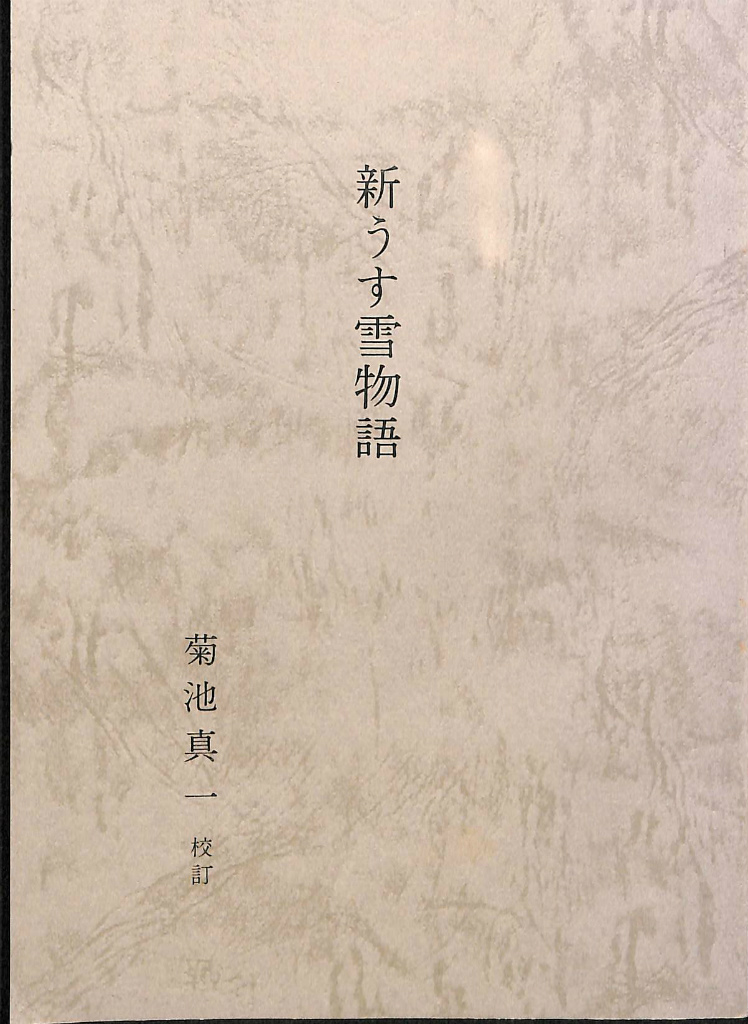 新うす雪物語
菊池真一 校訂